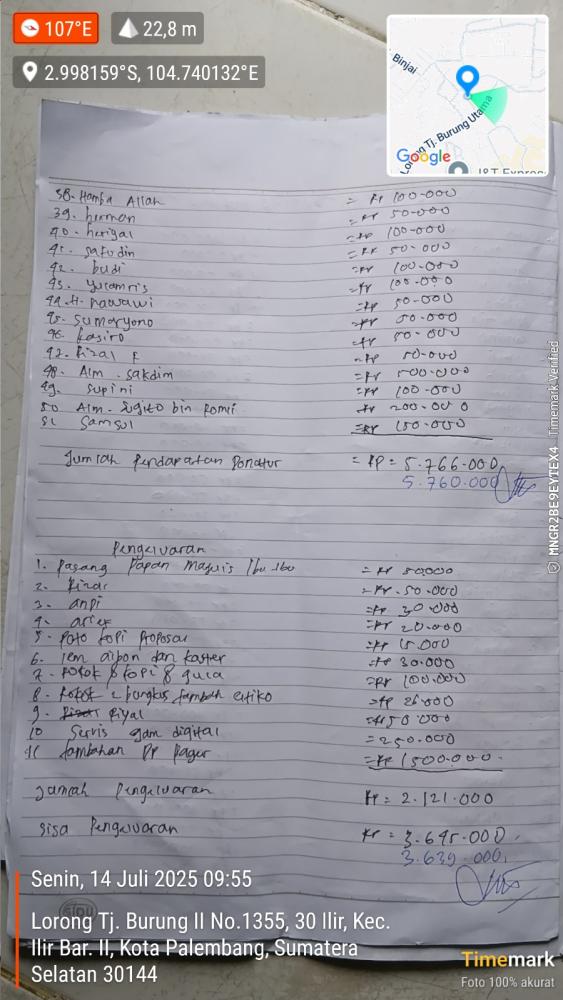 107°E
22,8 m
2.998159°S, 104.740132°E
Binjai
Lorong Tj. Burung Utama
Google
J&T Express
38. Hamba Allah = Rp 100.000
39. herman = Rp 50.000
40. herizal = Rp 100.000
41. safudin = Rp 50.000
42. budi = Rp 100.000
43. yusamris = Rp 100.000
44. H. nawawi = Rp 50.000
45. Sumaryono = Rp 50.000
46. kasiro = Rp 50.000
47. Rizal F = Rp 50.000
48. Alm. sakdim = Rp 500.000
49. Supini = Rp 100.000
50 Alm. Sugito bin Romli Rp 200.000
51 Samsul = Rp 150.000
Jumlah Pendapatan Donatur = Rp = 5.766.000
5.760.000
Pengeluaran
1. Pasang Papan Maguis Ibu-Ibu = Rp 50.000
2. Rizal = Rp. 50.000
3. anpi = Rp 30.000
4. arief = Rp 20.000
5. Poto kopi Proposal = Rp 15.000
6. lem aibon dan kaster = Rp 30.000
7. Rokok & kopi & gula = Rp 100.000
8. Rokok 2 bungkus tambah estiko = Rp 26.000
9. Riyal = Rp 50.000
10 Servis jam digital = 250.000
11 tambahan DP Pagar = Rp 1500.000.
Jumlah Pengeluaran Rp = 2.121.000
Sisa Pengeluaran Rp = 3.645.000,
3.639.000,
SIDU
Senin, 14 Juli 2025 09:55
Lorong Tj. Burung II No.1355, 30 Ilir, Kec.
Ilir Bar. II, Kota Palembang, Sumatera
Selatan 30144
Timemark
Foto 100% akurat
MNGR2BE9EYTEX4 Timemark Verified